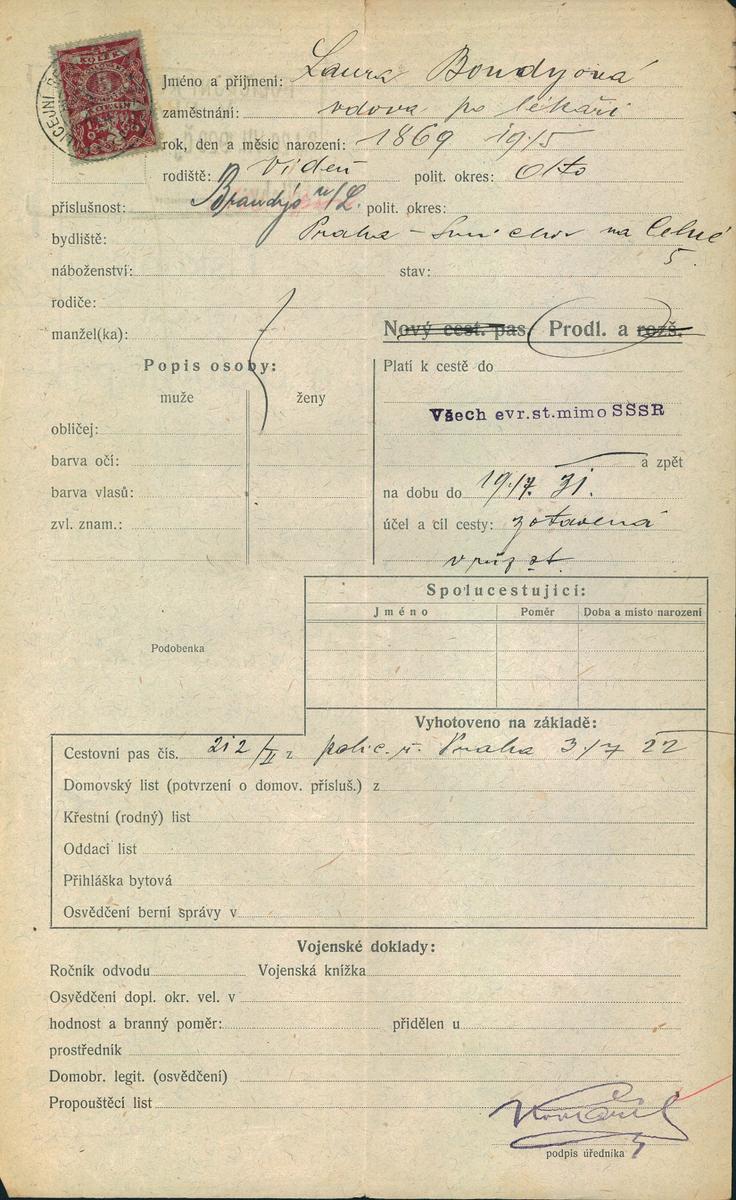 KOLEK
5
Jméno a příjmení: Laura Bondyová
zaměstnání: vdova po lékaři
rok, den a měsíc narození: 1869 19/5
rodiště: Vídeň polit. okres:
příslušnost: Brandýs n/L. polit. okres:
bydliště: Praha - Smíchov na Celné
5.
náboženství: stav:
rodiče:
manžel(ka):
Nový cest. pas. Prodl. a rozš.
Popis osoby:
muže ženy
obličej:
barva očí:
barva vlasů:
zvl. znam.:
Platí k cestě do
Všech evr.st.mimo SSSR
a zpět
na dobu do 19/7. 31.
účel a cíl cesty: zotavená
v růz st.
Spolucestující:
Jméno Poměr Doba a místo narození
Podobenka
Vyhotoveno na základě:
Cestovní pas čís. 212/II z polic. ř. Praha 3/7 22
Domovský list (potvrzení o domov. přísluš.) z
Křestní (rodný) list
Oddací list
Přihláška bytová
Osvědčení berní správy v
Vojenské doklady:
Ročník odvodu Vojenská knížka
Osvědčení dopl. okr. vel. v
hodnost a branný poměr: přidělen u
prostředník
Domobr. legit. (osvědčení)
Propouštěcí list
podpis úředníka